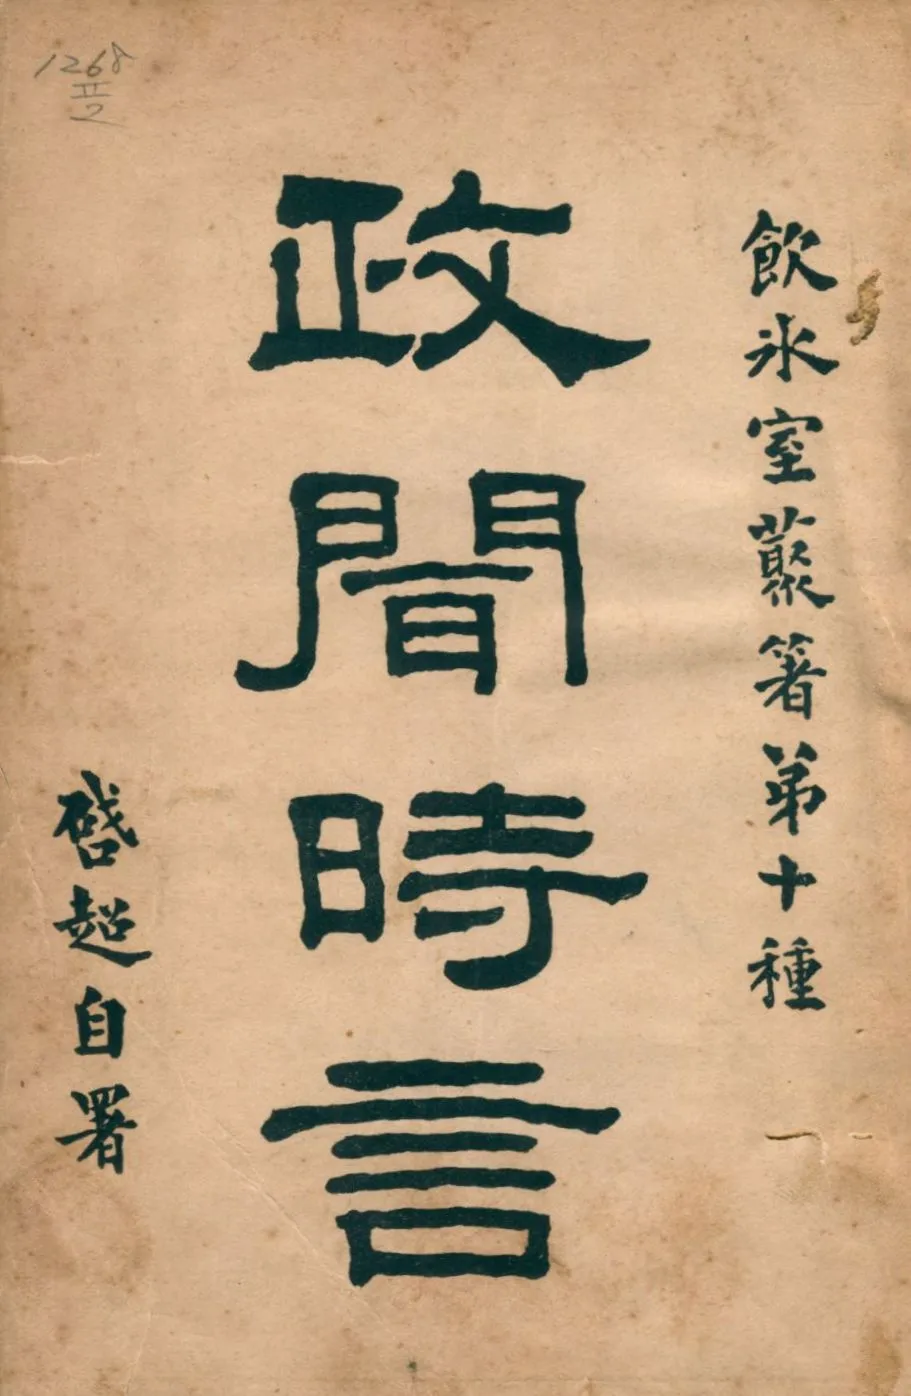 1268
II
2
飲氷室藂箸弟十種
政聞時言
啓超自署